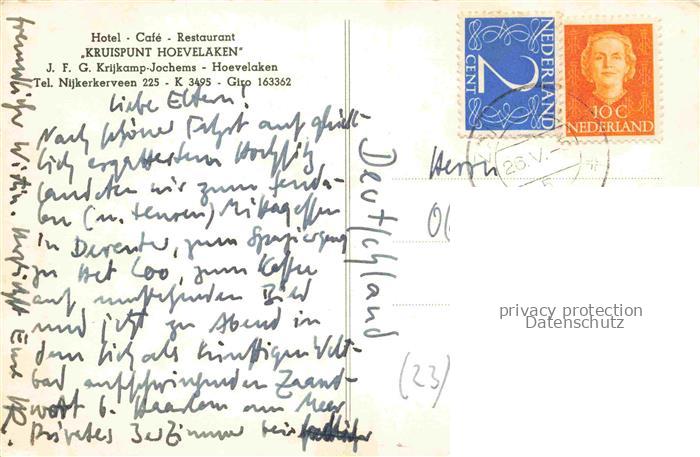 Hotel - Café - Restaurant
„KRUISPUNT HOEVELAKEN"
J. F. G. Krijkamp-Jochems - Hoevelaken
Tel. Nijkerkerveen 225 - K 3495 - Giro 163362
Liebe Eltern!
Nach schöner Fahrt auf glück-
lich ergattertem Hochsitz
landeten wir zum
(u. teuren) Mittagessen
in Deventer, zum Spaziergang
zu Het Loo, zum Kaffee
auf umstehendem Bild
und jetzt zu Abend in
dem sich als künftigen Welt-
bad aufschwingenden Zaand-
voort b. Haarlem am Meer
Privates 3erZimmer bei
freundlicher Wirtin. Herzlichst Eure
NEDERLAND
2
CENT
10 C
NEDERLAND
26.V.
Herrn
Deutschland
(23)
privacy protection
Datenschutz